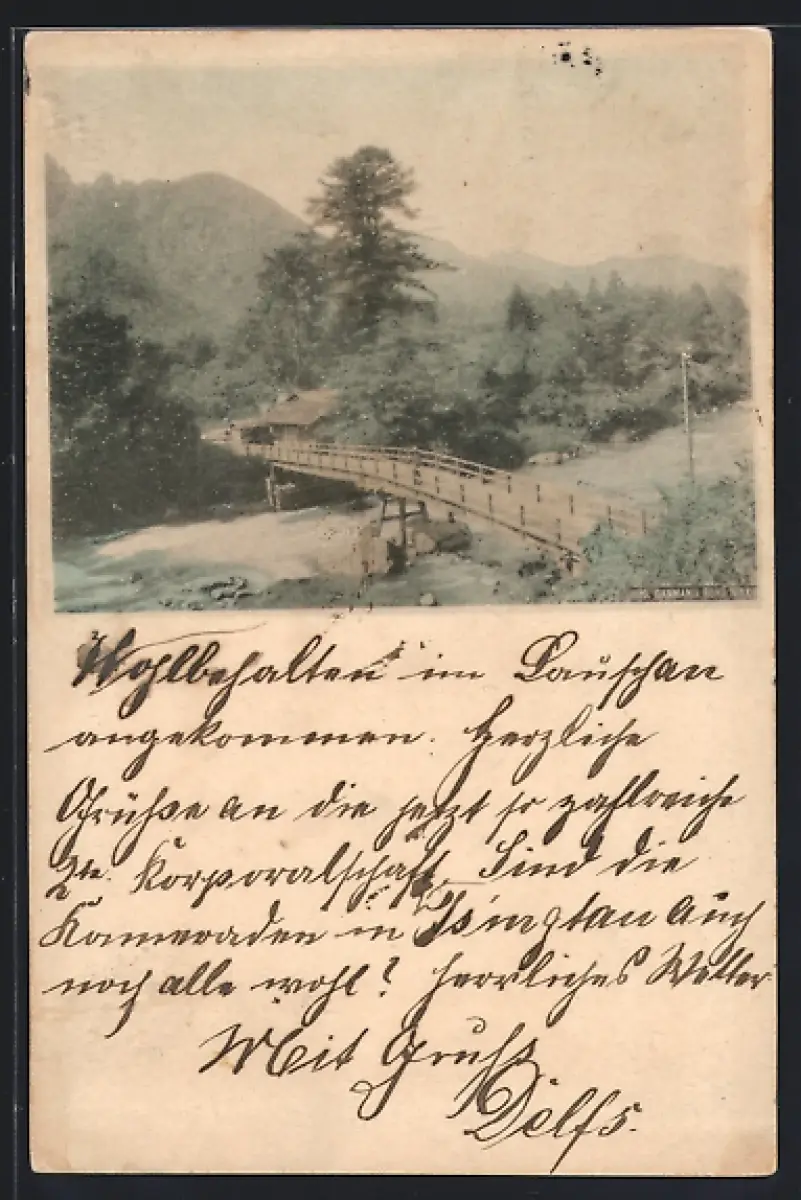 Wohlbehalten im Lauschan
angekommen. Herzliche
Grüße an die jetzt so zahlreiche
2te. Korporalschaft, Sind die
Kameraden in Tsingtau auch
noch alle wohl? Herrliches Wetter.
Mit Gruß
Delfs.